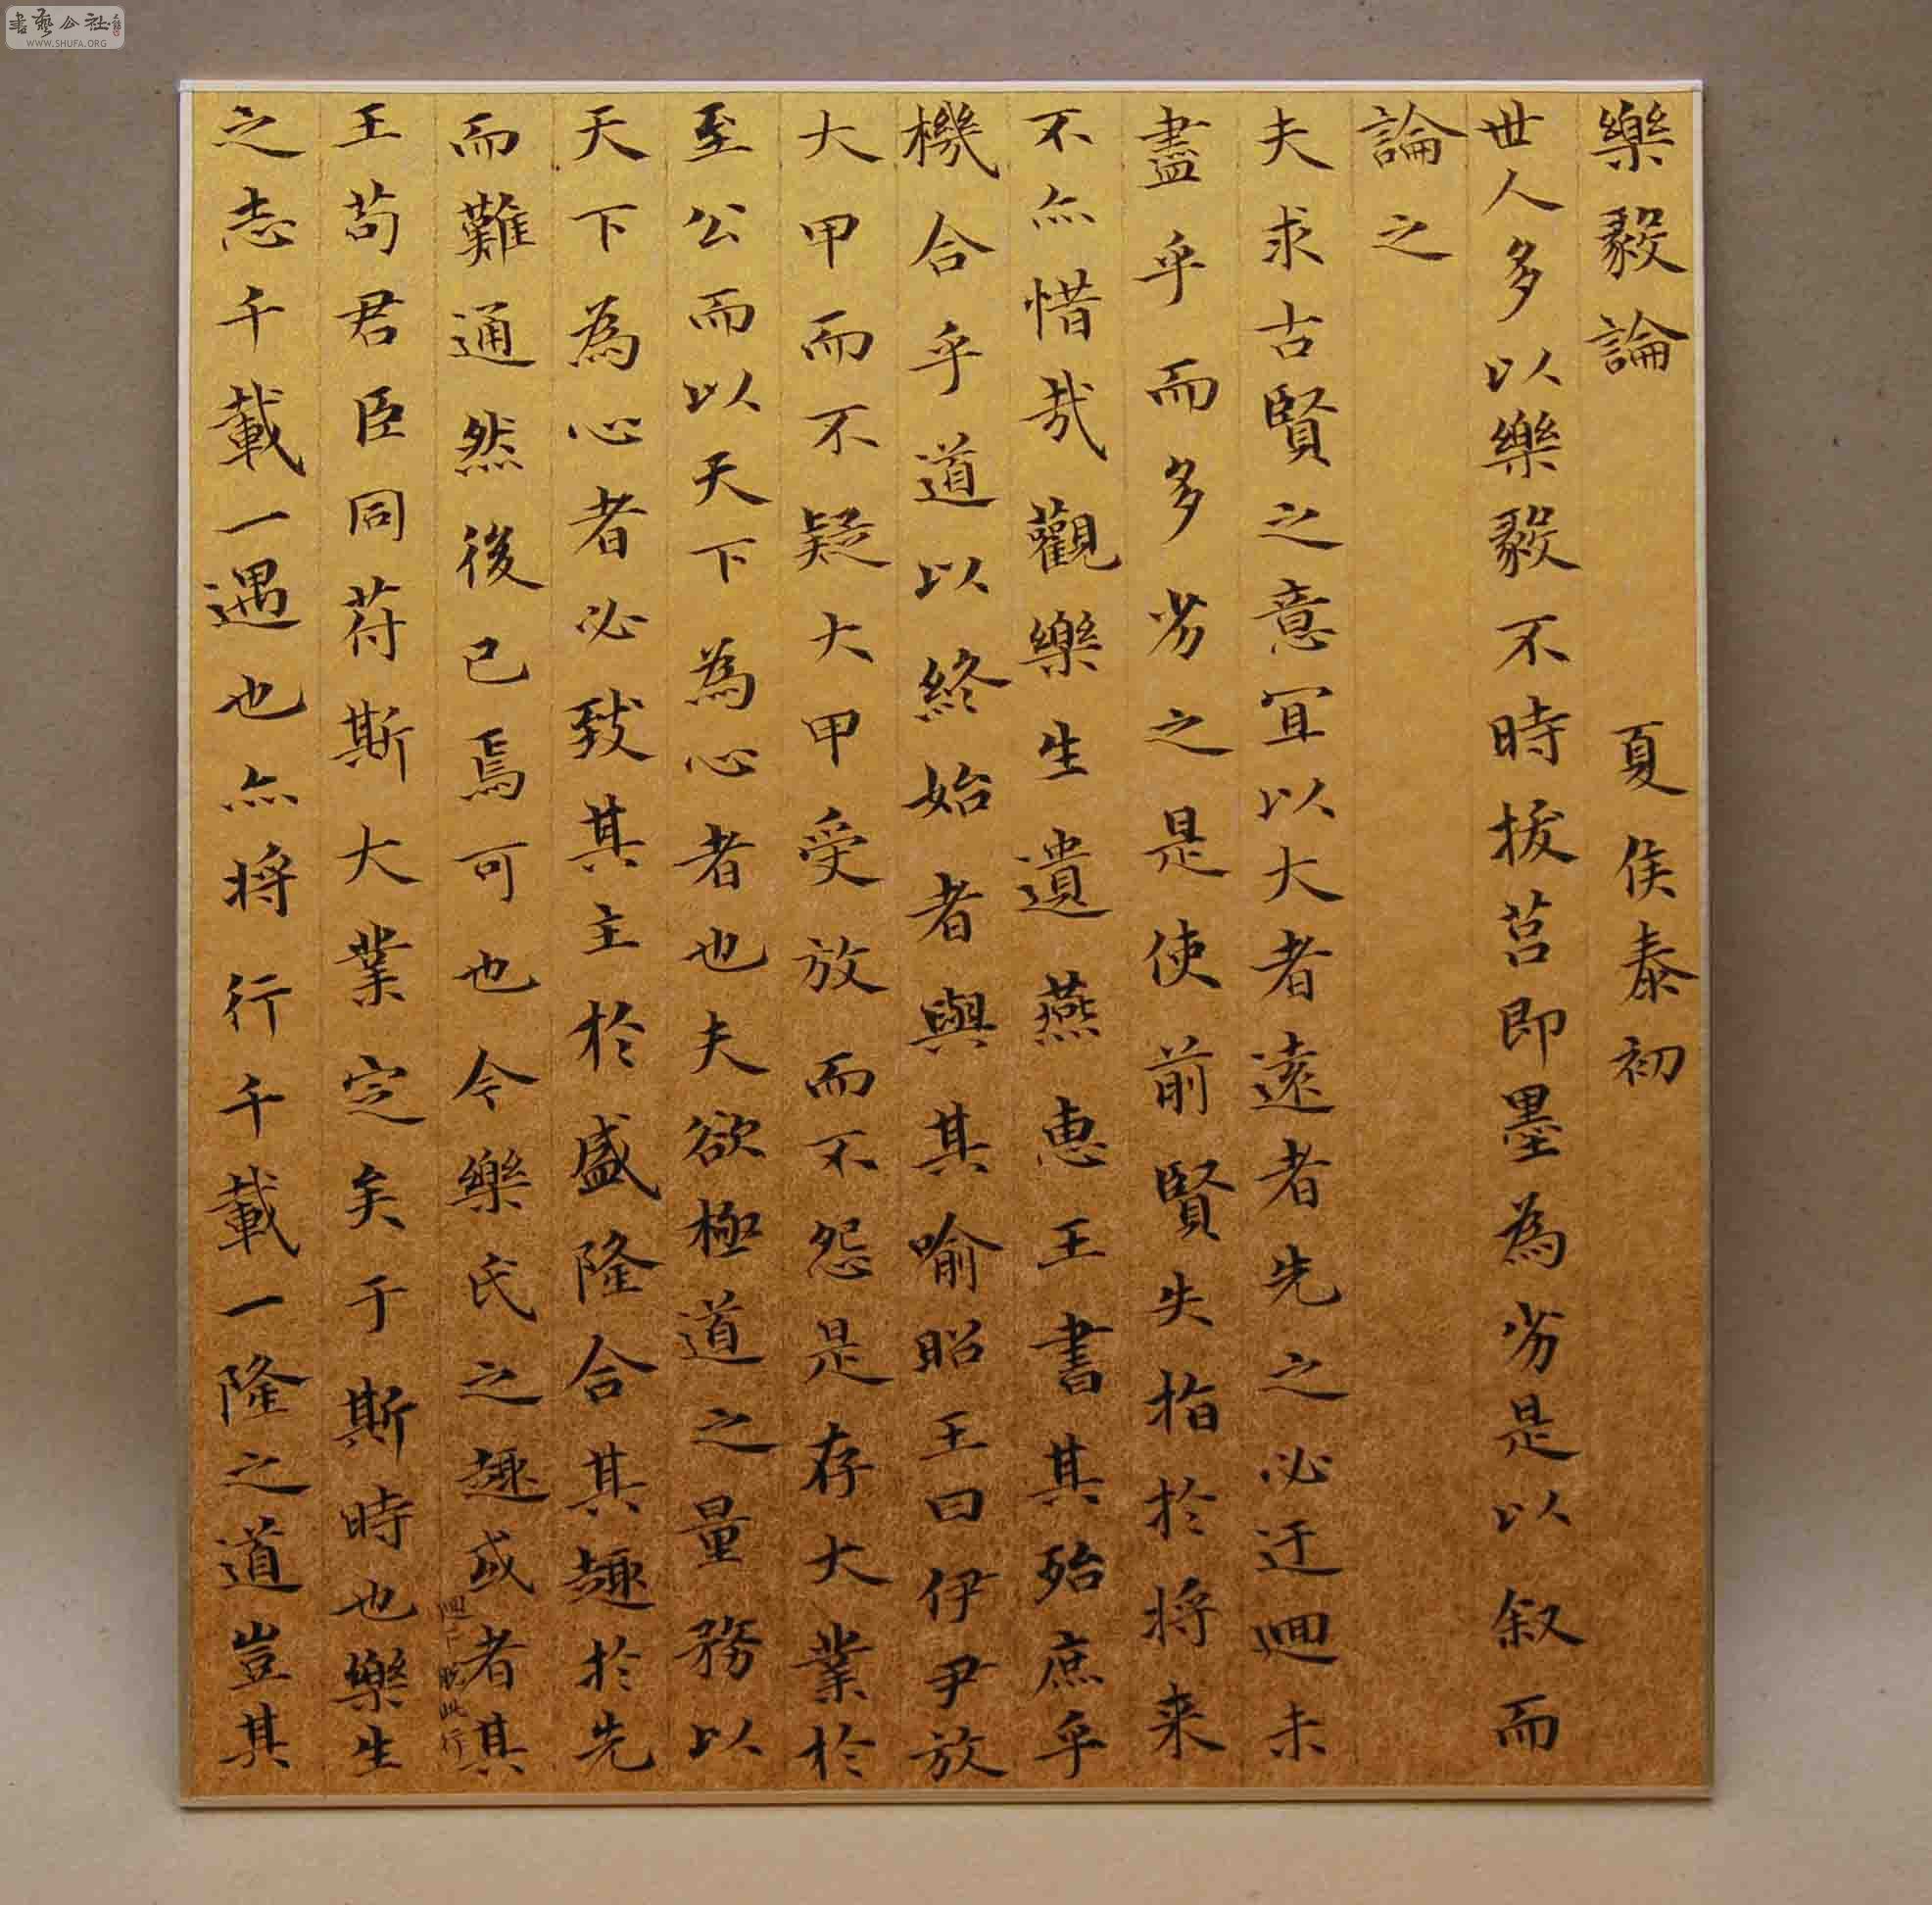 樂毅論 夏侯泰初
世人多以樂毅不時拔莒即墨為劣是以叙而
論之
夫求古賢之意冝以大者遠者先之必迂逥未
盡乎而多劣之是使前賢失指於将来
不亦惜哉觀樂生遺燕惠王書其殆庶乎
機合乎道以終始者與其喻昭王曰伊尹放
大甲而不疑大甲受放而不怨是存大業於
至公而以天下為心者也夫欲極道之量務以
天下為心者必致其主於盛隆合其趣於先
而難通然後已焉可也今樂氏之趣或者其
逥下脱此行
王苟君臣同苻斯大業定矣于斯時也樂生
之志千載一遇也亦将行千載一隆之道豈其
書藝公社
WWW.SHUFA.ORG